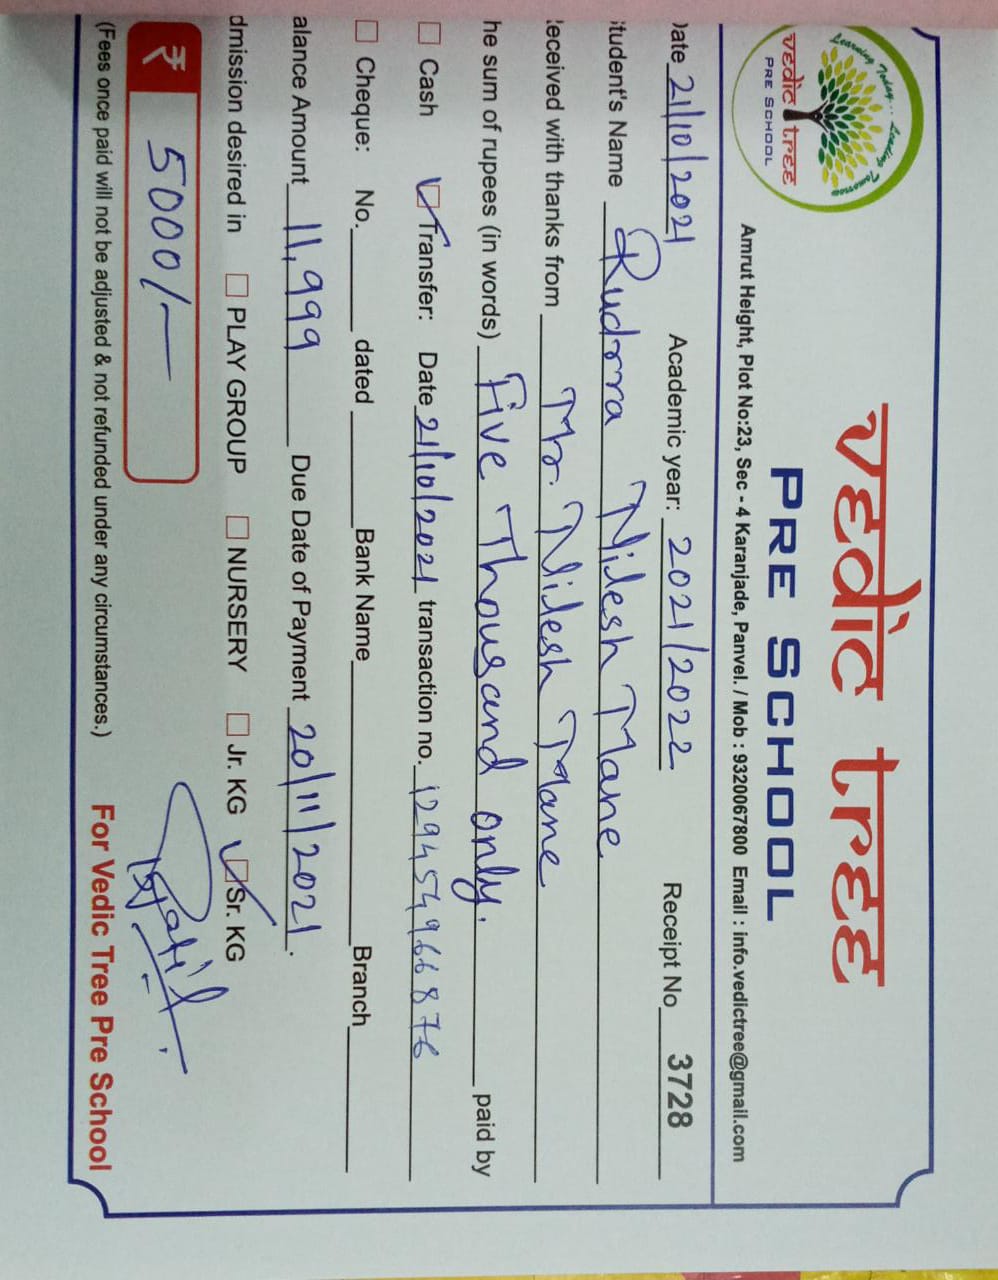 Learning Today... Leading Tomorrow
vedic tree
PRE SCHOOL
vedic tree
PRE SCHOOL
Amrut Height, Plot No:23, Sec - 4 Karanjade, Panvel. / Mob : 9320067800 Email : info.vedictree@gmail.com
Date 21/10/2021 Academic year: 2021/2022 Receipt No 3728
tudent's Name Rudrra Nilesh Mane
eceived with thanks from Mr. Nilesh Mane
he sum of rupees (in words) Five Thousand only. paid by
Cash Transfer: Date 21/10/2021 transaction no. 129454966876
Cheque: No. dated Bank Name Branch
alance Amount 11,999 Due Date of Payment 20/11/2021.
dmission desired in PLAY GROUP NURSERY Jr. KG Sr. KG
₹ 5000/-
(Fees once paid will not be adjusted & not refunded under any circumstances.) For Vedic Tree Pre School